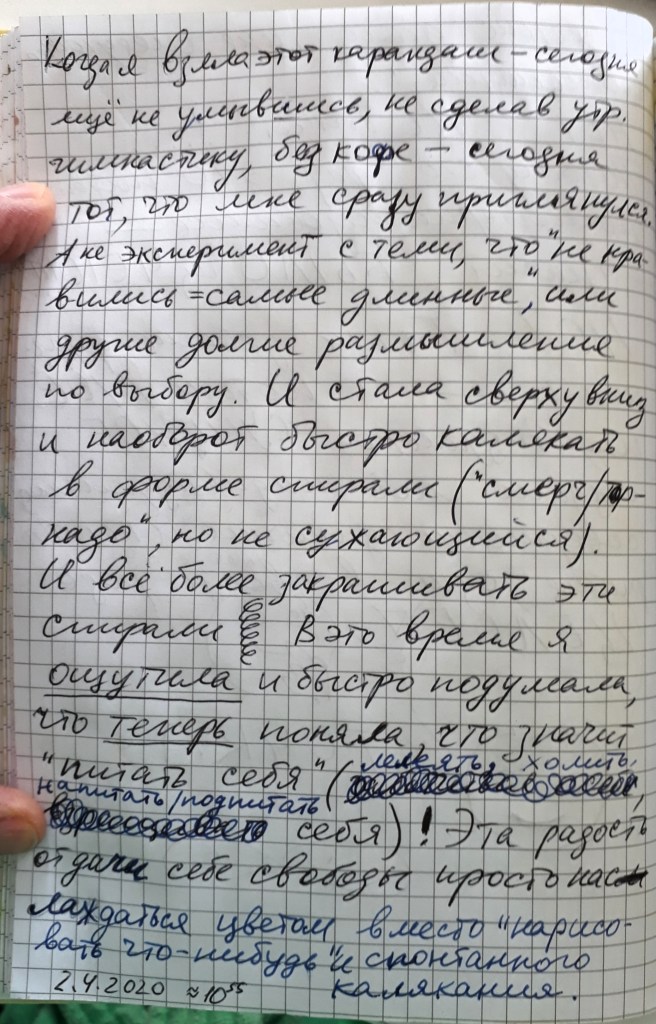 Когда я взяла этот карандаш – сегодня
ещё не умывшись, не сделав утр.
гимнастику, без кофе – сегодня
тот, что мне сразу приглянулся.
А не эксперимент с теми, что "не нра-
вились = самые длинные", или
другие долгие размышление
по выбору. И стала сверху вниз
и наоборот быстро калякать
в форме спирали ("смерч/тор-
надо", но не сужающийся).
И всё более закрашивать эти
спирали В это время я
ощутила и быстро подумала,
что теперь поняла, что значит
"питать себя" (лелеять, холить,
напитать/подпитать себя)! Эта радость
отдачи себе свободы просто нас
лаждаться цветом вместо "нарисо-
вать что-нибудь" и спонтанного
калякания.
2.4.2020 ≈ 10⁵⁵